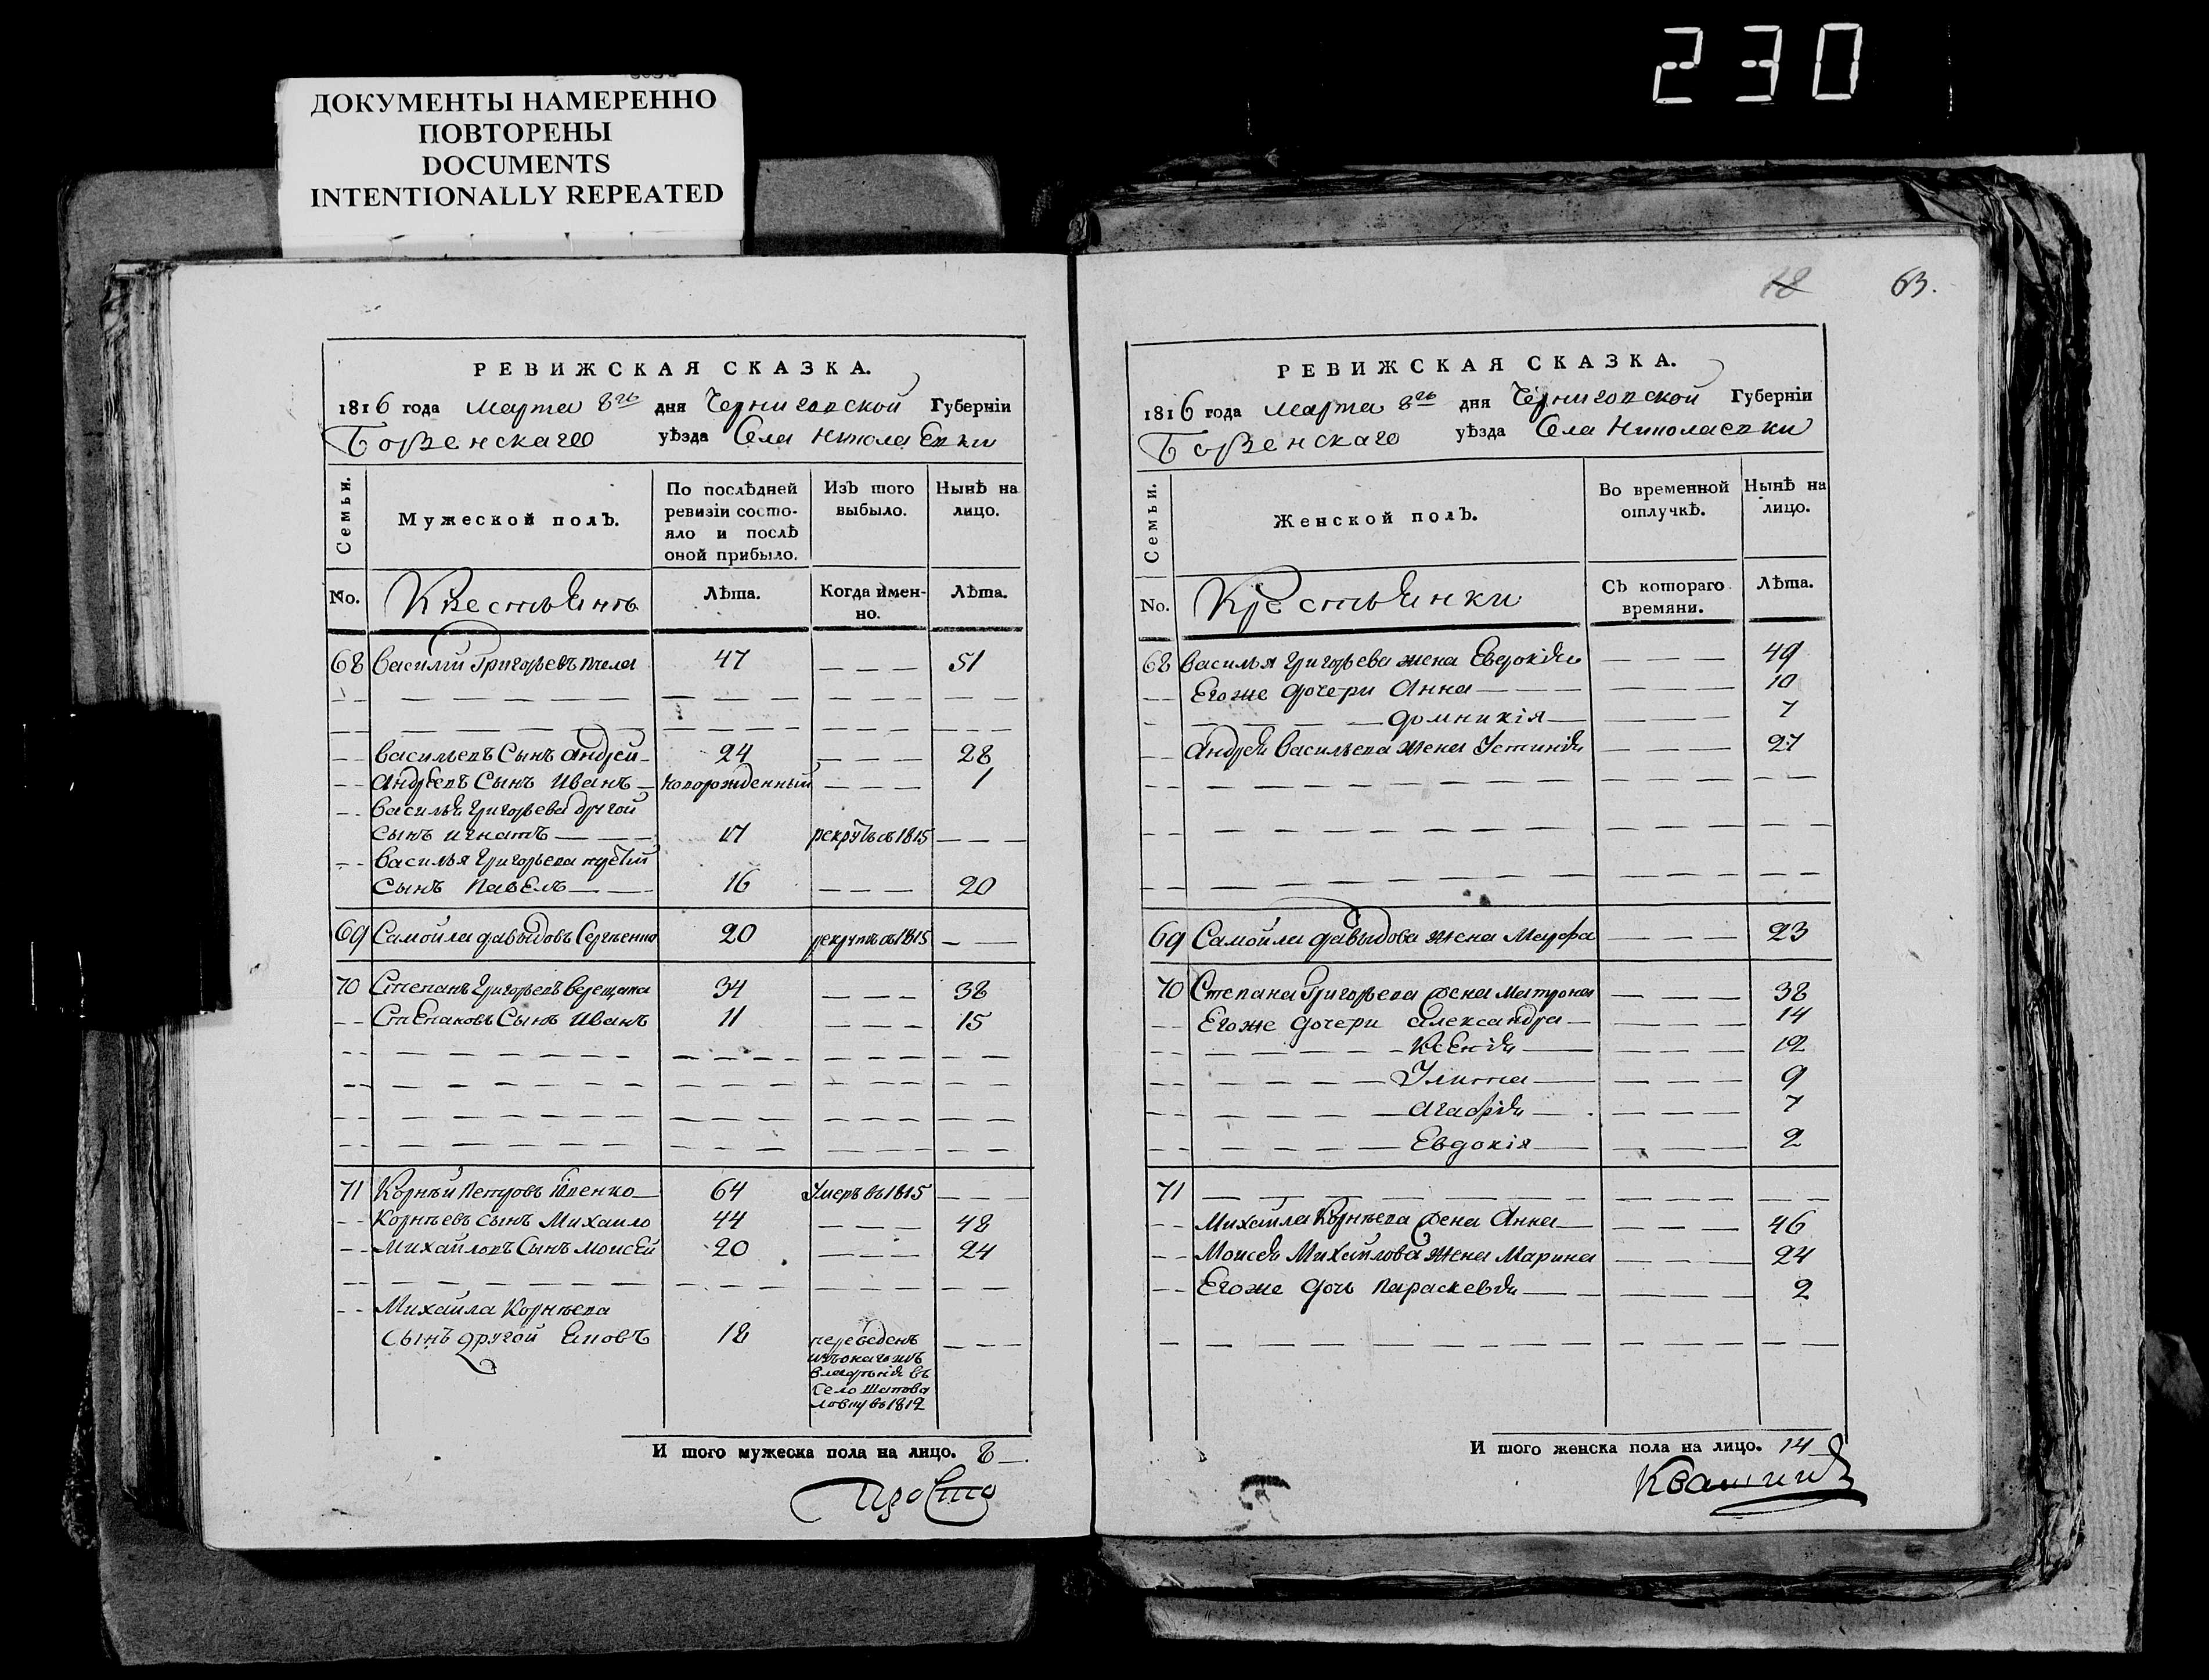 230
ДОКУМЕНТЫ НАМЕРЕННО
ПОВТОРЕНЫ
DOCUMENTS
INTENTIONALLY REPEATED
РЕВИЖСКАЯ СКАЗКА.
1816 года Марта 8го дня Черниговской Губерніи
Борзенскаго уѣзда Села Николаевки
Семьи.
Мужеской полъ.
По послѣдней ревизіи состояло и послѣ оной прибыло.
Изъ того выбыло.
Нынѣ на лицо.
No. Крестьянъ Лѣта. Когда имен-но. Лѣта.
68 Василий Григорьевъ 47 — — — 51
Васильевъ Сынъ Андрей 24 — — — 28
Андреевъ Сынъ Иванъ новорожденный — — — 1
Василья Григорьева другой
сынъ Игнатъ 17 рекрутъ съ 1815 — — —
Василья Григорьева третий
Сынъ Павелъ 16 — — — 20
69 Самойла Давыдовъ Сергиенко 20 рекрутъ съ 1815 — —
70 Степанъ Григорьевъ Верещака 34 — — — 38
Степановъ Сынъ Иванъ 11 — — — 15
71 Корнѣй Петровъ 64 Умеръ въ 1815 — — —
Корнѣевъ сынъ Михайло 44 — — — 48
Михайловъ Сынъ Моисей 20 — — — 24
Михайла Корнѣева
Сынъ другой 18 переведенъ
владѣнія въ
Село Шапова
ловку въ 1812
И того мужеска пола на лицо. 8
18 63.
РЕВИЖСКАЯ СКАЗКА.
1816 года Марта 8го дня Черниговской Губерніи
Борзенскаго уѣзда Села Николаевки
Семьи.
Женской полъ.
Во временной отлучкѣ.
Нынѣ на лицо.
No. Крестьянки Съ котораго времяни. Лѣта.
68 Василья Григорьева жена Евдокія — — — 49
Егоже дочери Анна — — — 10
Домникія — — — 7
Андрея Васильева жена Устинія — — — 27
69 Самойла Давыдова жена Марфа — — — 23
70 Степана Григорьева жена Матрона — — — 38
Егоже дочери Александра — — — 14
Ксенія — — — 12
Улита — — — 9
Агафія — — — 7
Евдокія — — — 2
71
Михайла Корнѣева жена Анна — — — 46
Моисея Михайлова жена Марина — — — 24
Егоже дочь Параскевія — — — 2
И того женска пола на лицо. 14